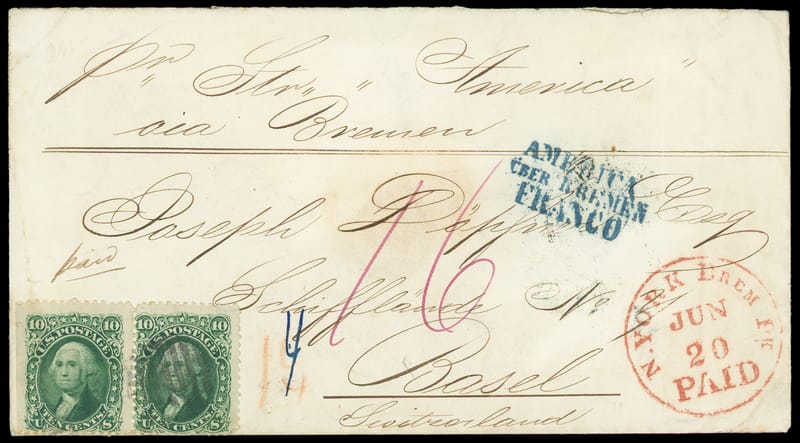 pr Str " America "
via Bremen
AMERICA
ÜBER BREMEN
FRANCO
Joseph Esq
paid
16
Schifflände No 7
4
Basel
Switzerland
N. YORK BREM PK
JUN
20
PAID
10 10
U.S. POSTAGE
TEN CENTS
U S
10 10
U.S. POSTAGE
TEN CENTS
U S